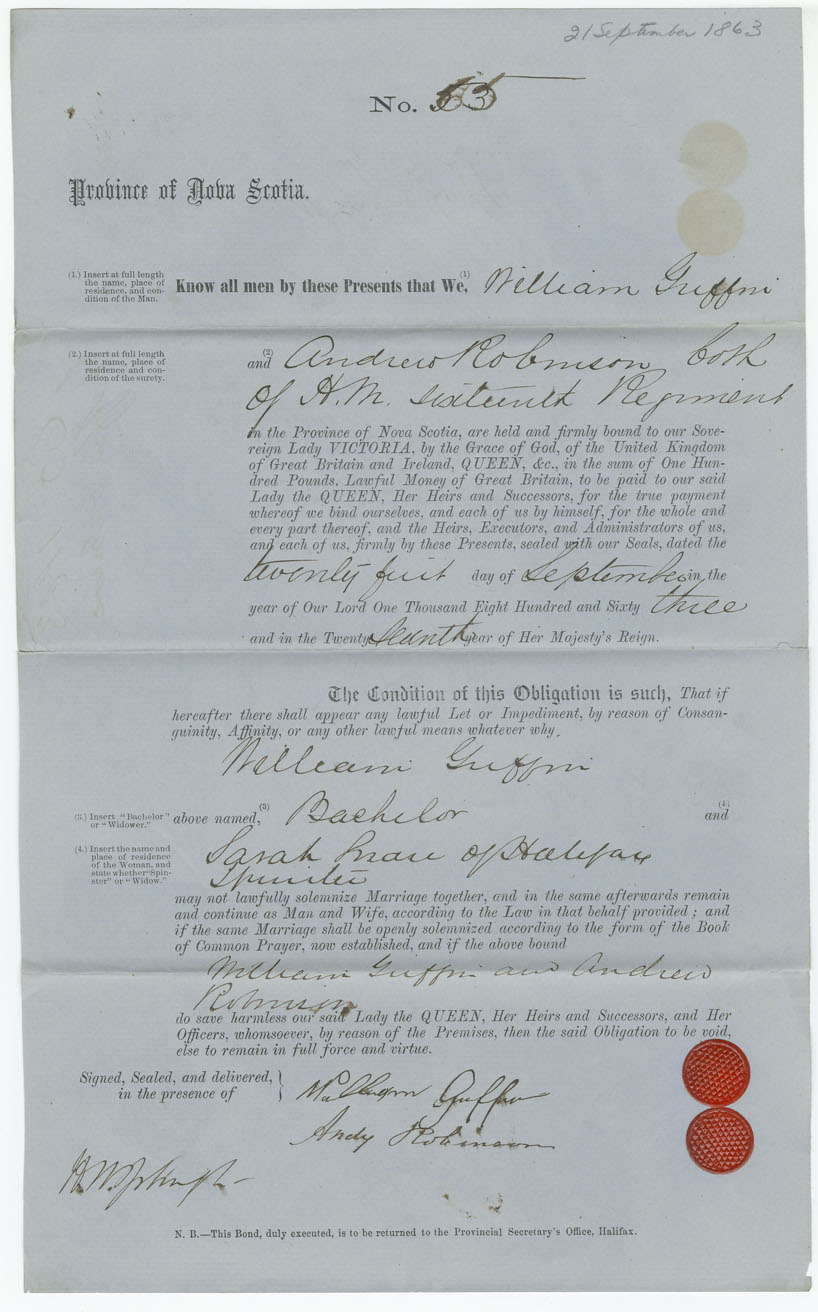 21 September 1863
No.
Province of Nova Scotia.
(1.) Insert at full length
the name, place of
residence, and con-
dition of the Man.
Know all men by these Presents that We, (1) William Griffin
(2.) Insert at full length
the name, place of
residence and con-
dition of the surety.
and (2) Andrew Robinson both
of H.M. sixteenth Regiment
in the Province of Nova Scotia, are held and firmly bound to our Sove-
reign Lady VICTORIA, by the Grace of God, of the United Kingdom
of Great Britain and Ireland, QUEEN, &c., in the sum of One Hun-
dred Pounds, Lawful Money of Great Britain, to be paid to our said
Lady the QUEEN, Her Heirs and Successors, for the true payment
whereof we bind ourselves, and each of us by himself, for the whole and
every part thereof, and the Heirs, Executors, and Administrators of us,
and each of us, firmly by these Presents, sealed with our Seals, dated the
twenty first day of September in the
year of Our Lord One Thousand Eight Hundred and Sixty three
and in the Twenty year of Her Majesty's Reign.
The Condition of this Obligation is such, That if
hereafter there shall appear any lawful Let or Impediment, by reason of Consan-
guinity, Affinity, or any other lawful means whatever why,
William Griffin
(3.) Insert "Bachelor"
or "Widower."
above named, (3) Bachelor and (4)
(4.) Insert the name and
place of residence
of the Woman, and
state whether "Spin-
ster" or "Widow."
Sarah of Halifax
Spinster
may not lawfully solemnize Marriage together, and in the same afterwards remain
and continue as Man and Wife, according to the Law in that behalf provided; and
if the same Marriage shall be openly solemnized according to the form of the Book
of Common Prayer, now established, and if the above bound
William Griffin and Andrew
Robinson
do save harmless our said Lady the QUEEN, Her Heirs and Successors, and Her
Officers, whomsoever, by reason of the Premises, then the said Obligation to be void,
else to remain in full force and virtue.
Signed, Sealed, and delivered,
in the presence of
William Griffin
Andy Robinson
N. B.—This Bond, duly executed, is to be returned to the Provincial Secretary's Office, Halifax.